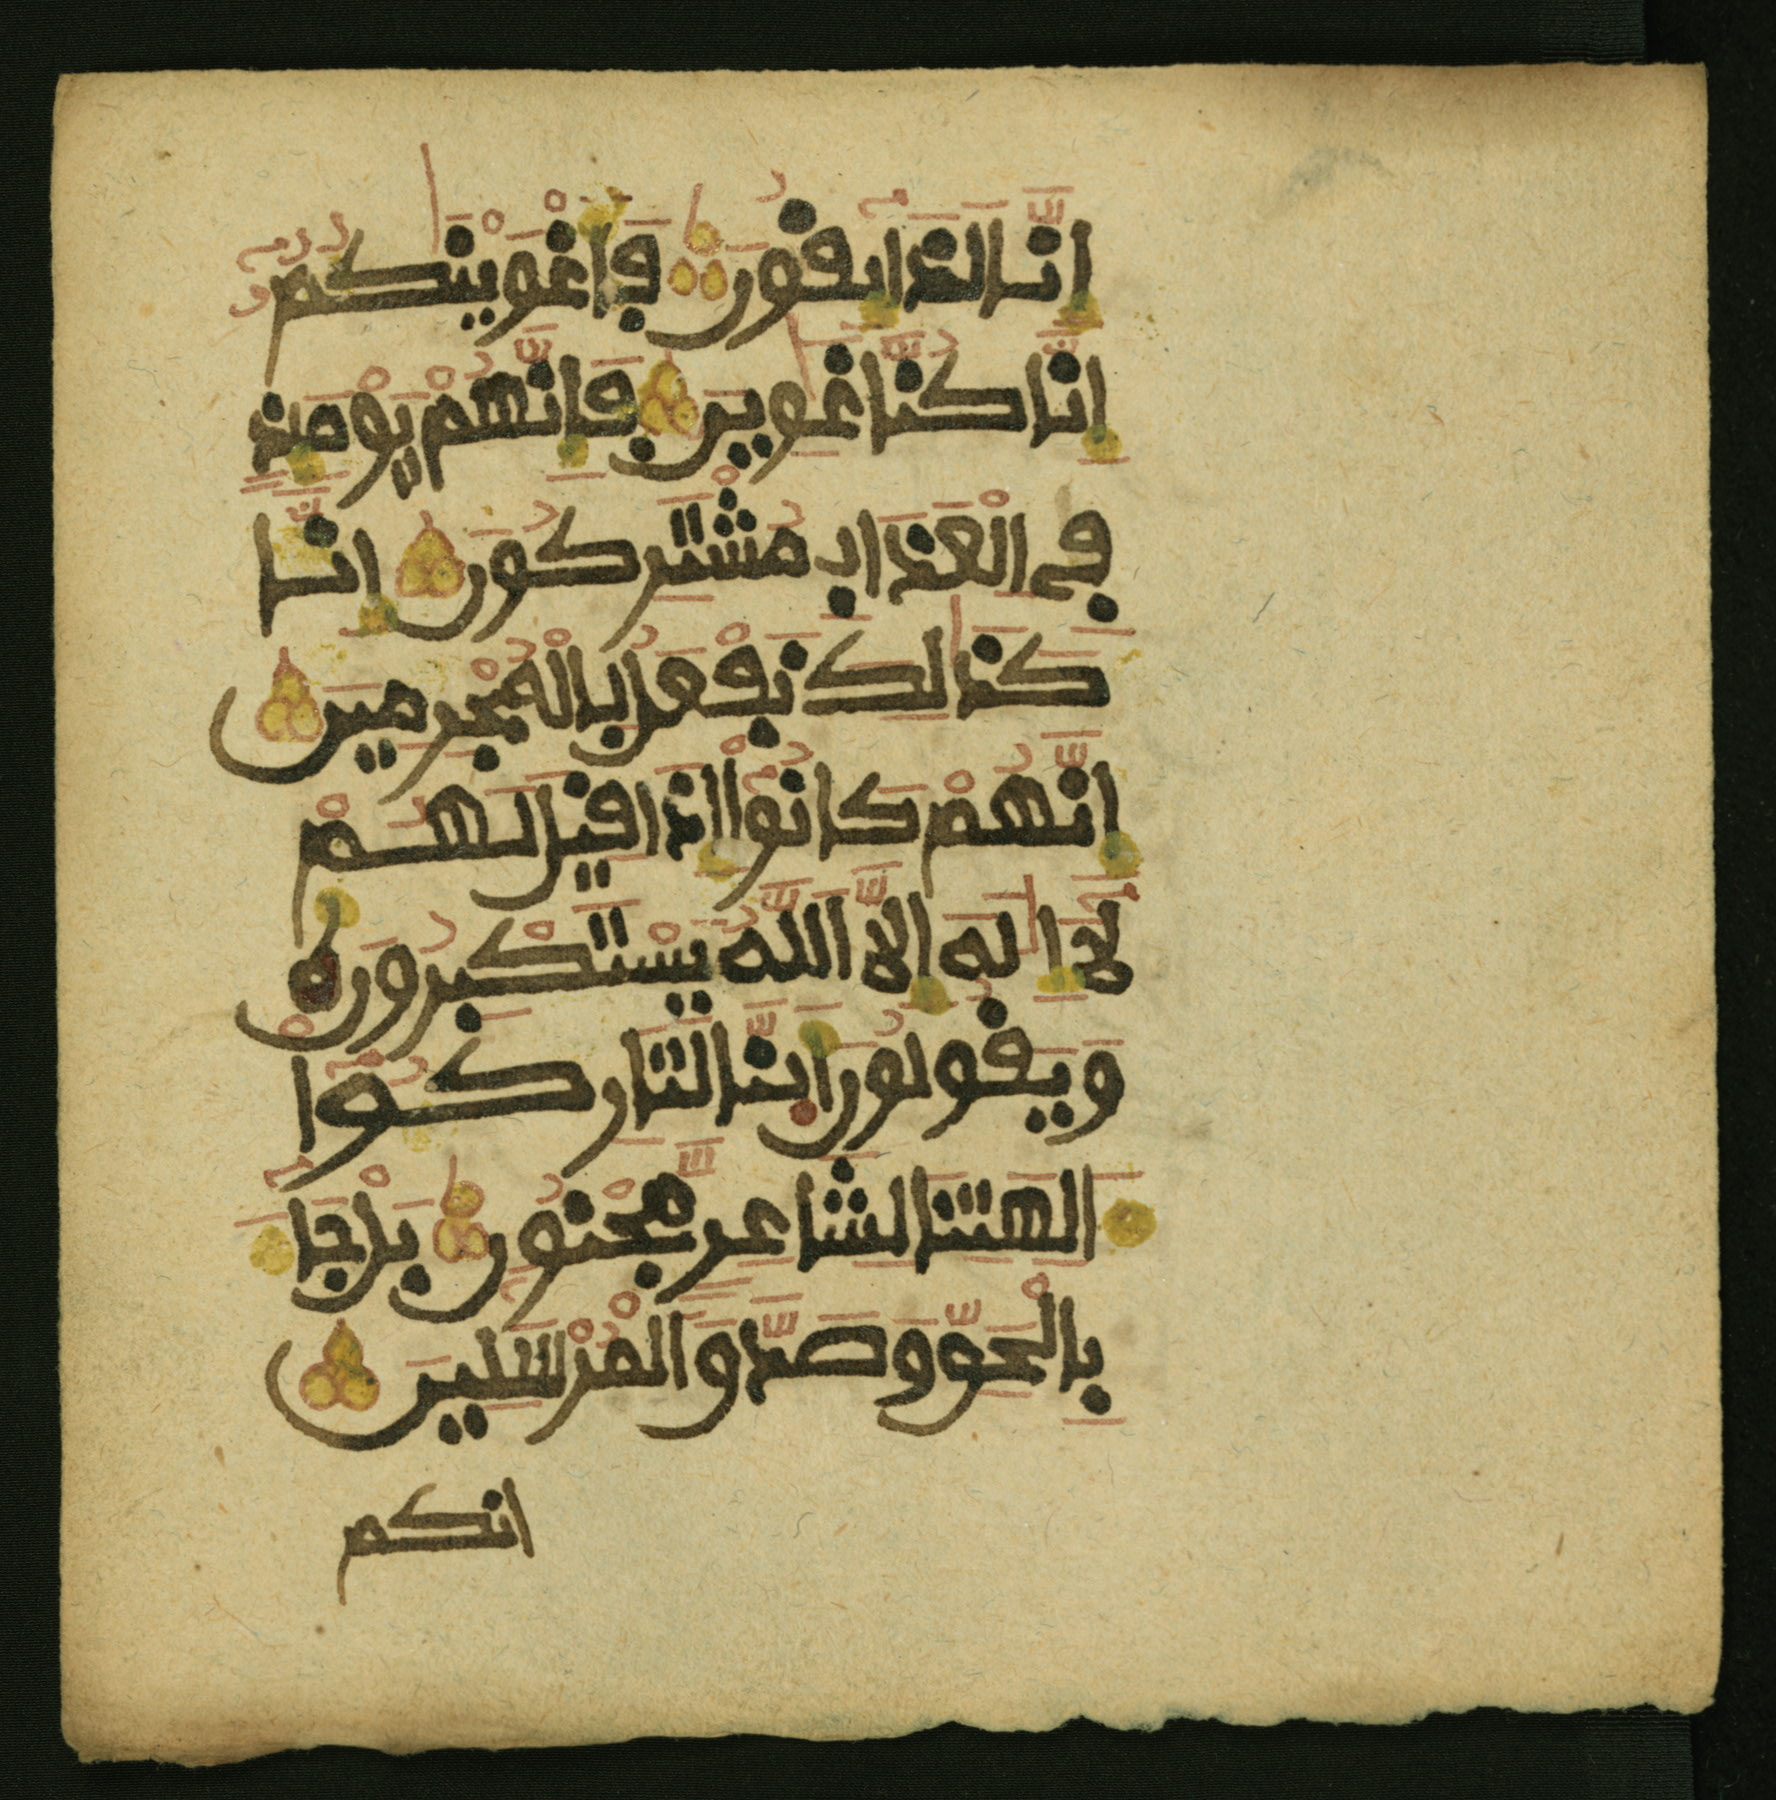 اِنَّا لَذَآئِفُونَ فَأَغْوَيْنَٰكُمُۥٓ
إِنَّا كُنَّا غَٰوِينَ فَإِنَّهُمْ يَوْمَئِذٍ
فِے اِلْعَذَابِ مُشْتَرِكُونَ إِنَّا
كَذَٰلِكَ نَفْعَلُ بِالْمُجْرِمِينَ
إِنَّهُمْ كَانُوٓاْ إِذَا قِيلَ لَهُمْ
لَآ إِلَٰهَ إِلَّا اَللَّهُ يَسْتَكْبِرُونَ
وَيَقُولُونَ أَئِنَّا لَتَارِكُوٓاْ
ءَالِهَتِنَا لِشَاعِرٍ مَّجْنُونٍ بَلْ جَآ
بِالْحَقِّ وَصَدَّقَ اَلْمُرْسَلِينَ
انكم